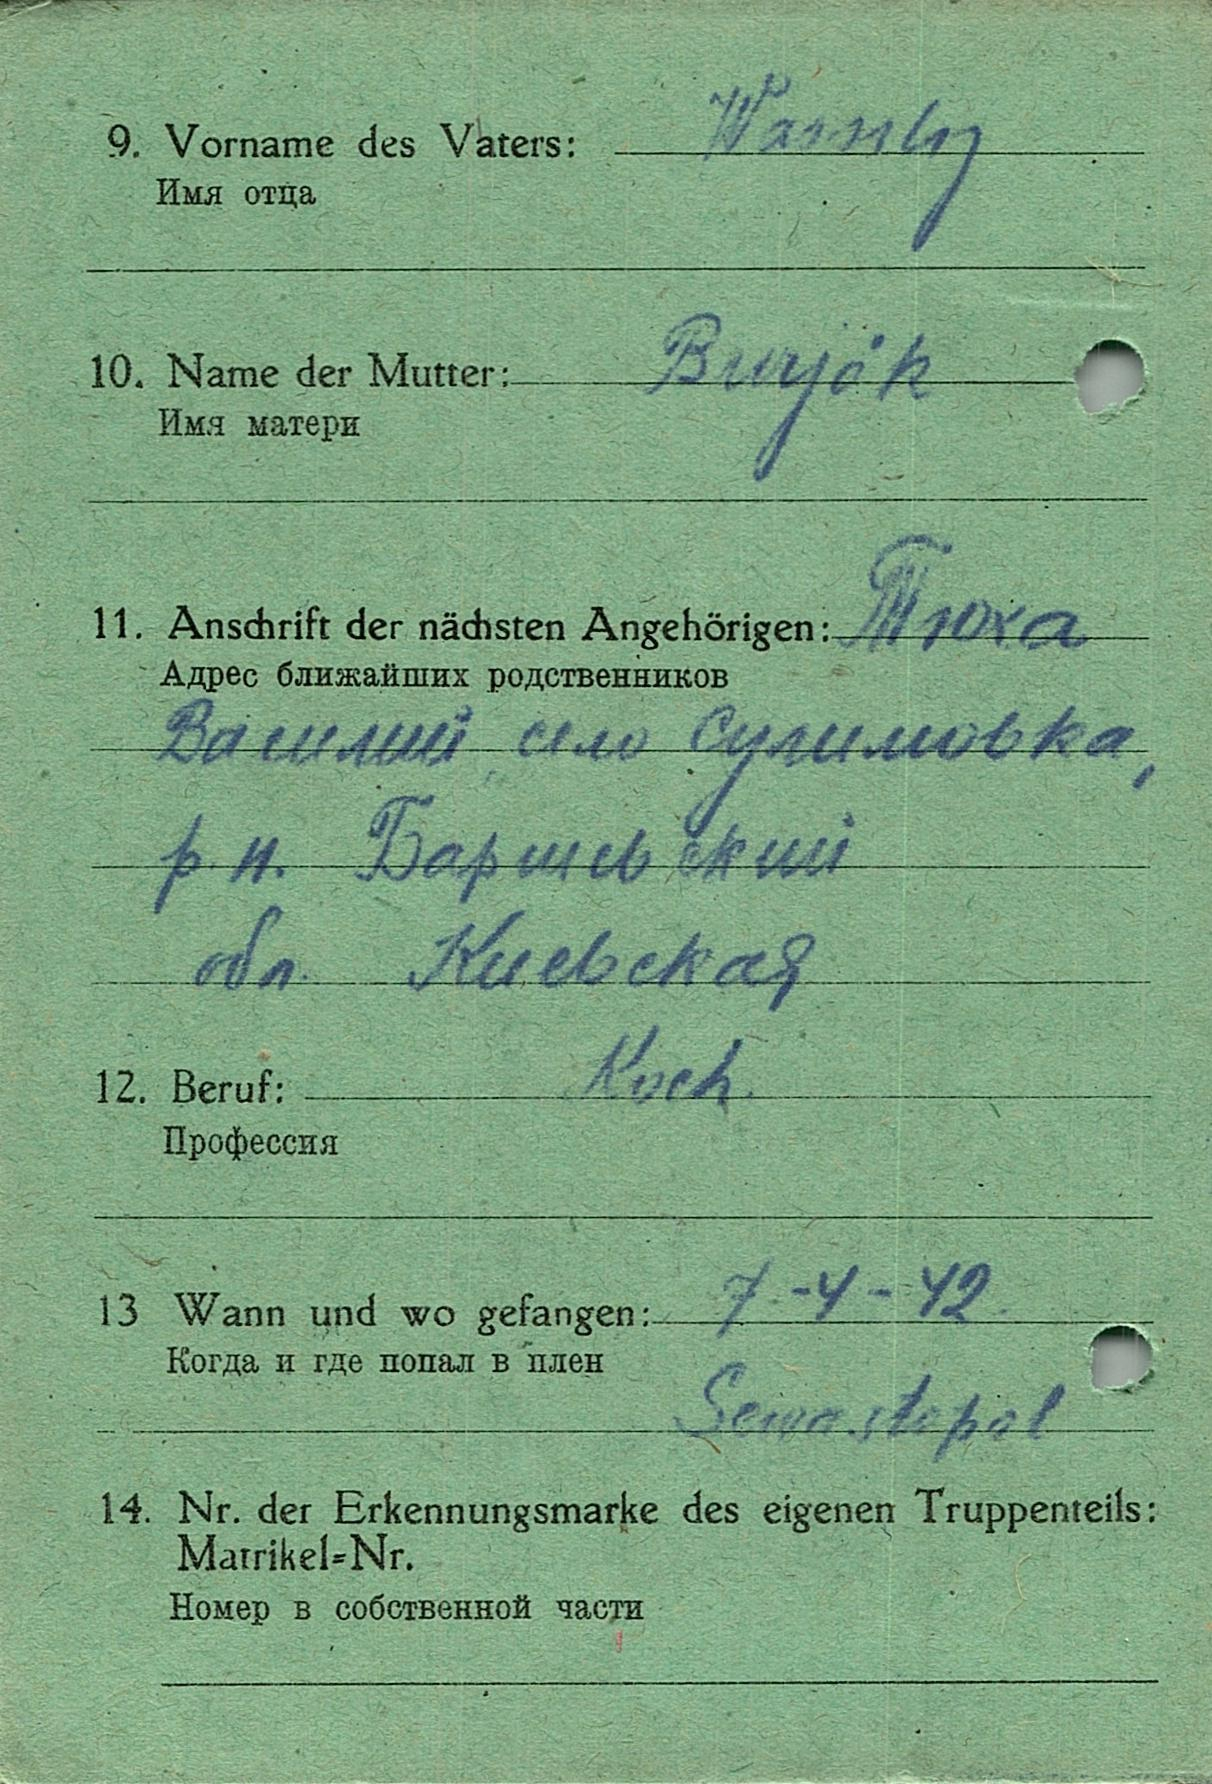 9. Vorname des Vaters: Wassily
Имя отца
10. Name der Mutter: Burjak
Имя матери
11. Anschrift der nächsten Angehörigen: Тюха
Адрес ближайших родственников
Василий село Сулимовка,
р.н. Баршевский
обл. Киевская
12. Beruf: Koch.
Профессия
13 Wann und wo gefangen: 7-4-42
Когда и где попал в плен
Sewastopol
14. Nr. der Erkennungsmarke des eigenen Truppenteils:
Matrikel=Nr.
Номер в собственной части